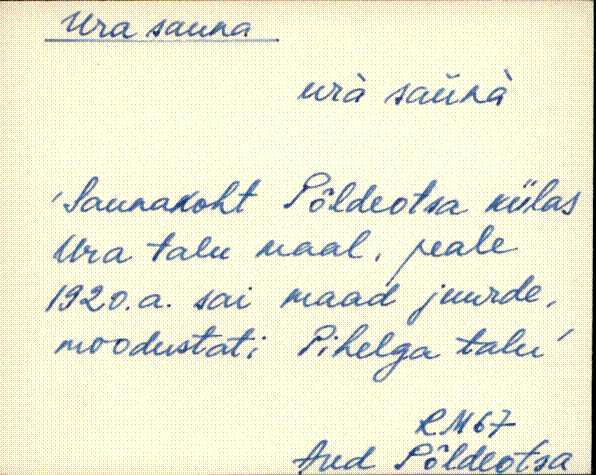 Ura sauna
urà saùnà
'Saunakoht Põldeotsa külas
Ura talu maal, peale
1920.a. sai maad juurde,
moodustati Pihelga talu'
RM67
Aud Põldeotsa